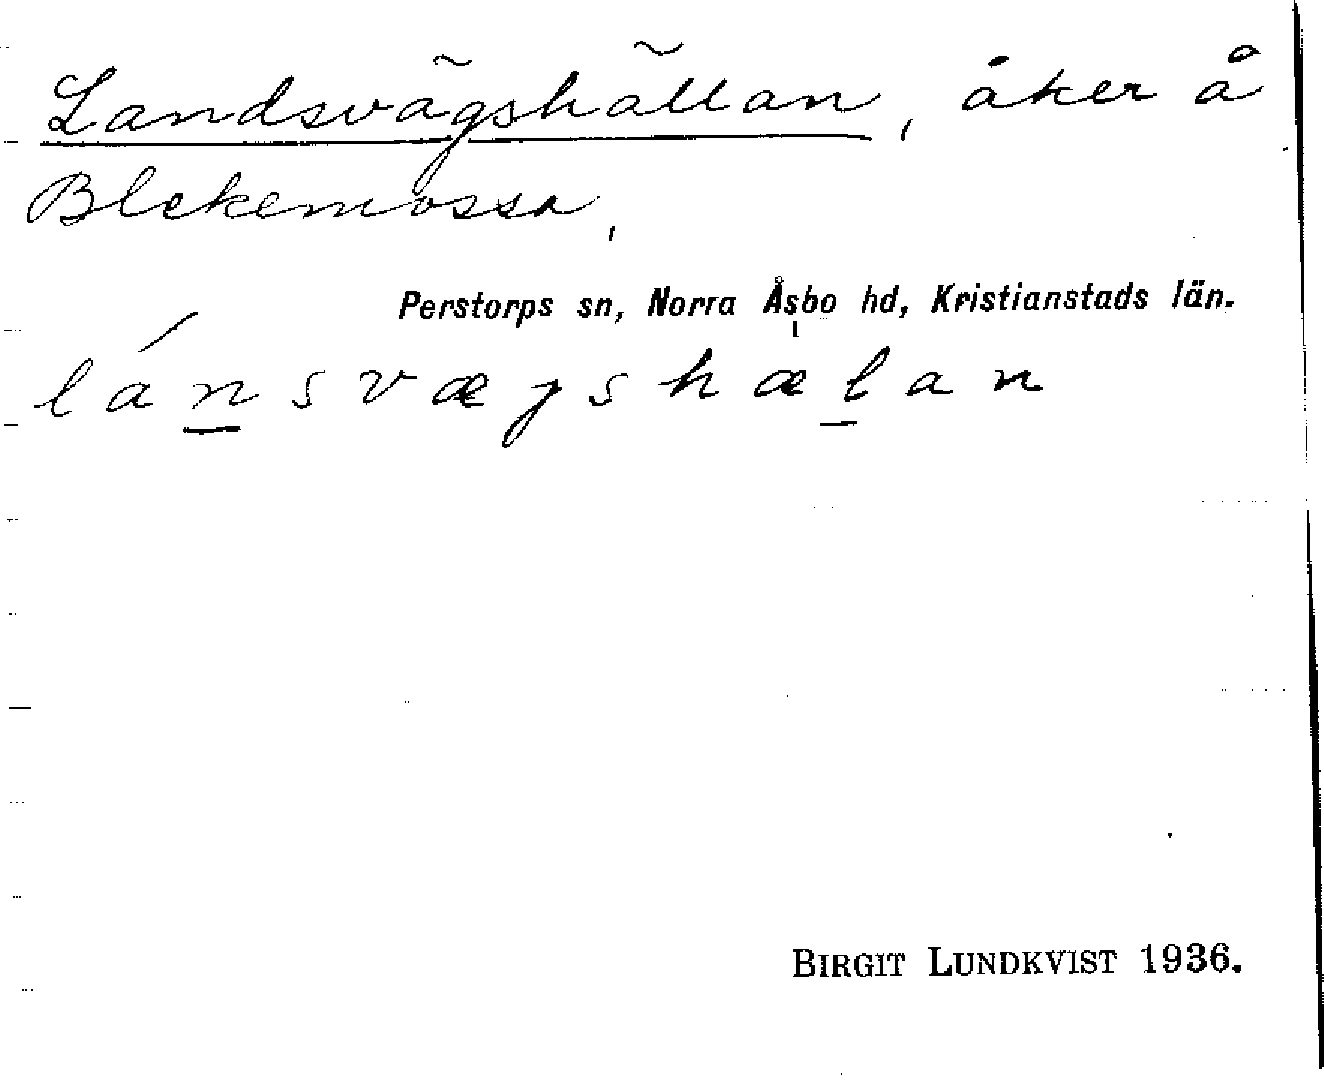 Landsvägshällan, åker å
Blekemossa,
Perstorps sn, Norra Åsbo hd, Kristianstads län.
lánsvægshælan
BIRGIT LUNDKVIST 1936.